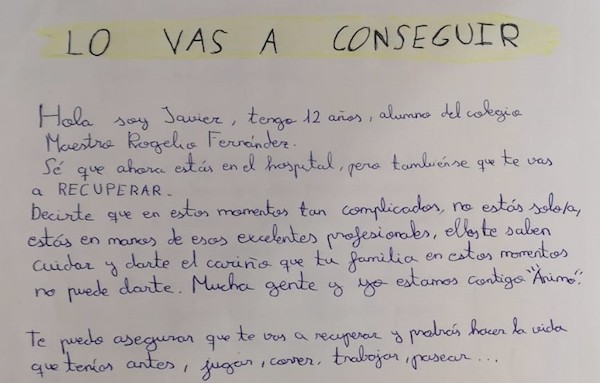 LO VAS A CONSEGUIR
Hola soy Javier, tengo 12 años, alumno del colegio
Maestro Rogelio Fernández.
Sé que ahora estás en el hospital, pero tambiénse que te vas
a RECUPERAR.
Decirte que en estos momentos tan complicados, no estás solo/a,
estás en manos de esos excelentes profesionales, elloste saben
cuidar y darte el cariño que tu familia en estos momentos
no puede darte. Mucha gente y yo estamos contigo "Ánimo".
Te puedo asegurar que te vas a recuperar y podrás hacer la vida
que tenías antes, jugar, correr, trabajar, pasear...